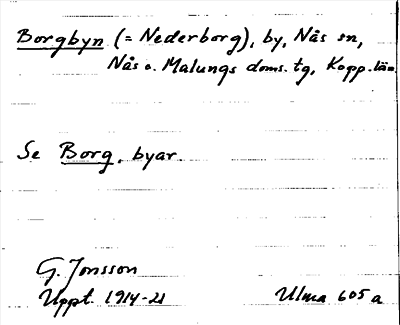 Borgbyn (= Nederborg), by, Nås sn,
Nås o. Malungs doms. tg, Kopp. län.
Se Borg, byar.
G. Jonsson
Uppt. 1914-21
Ulma 605 a